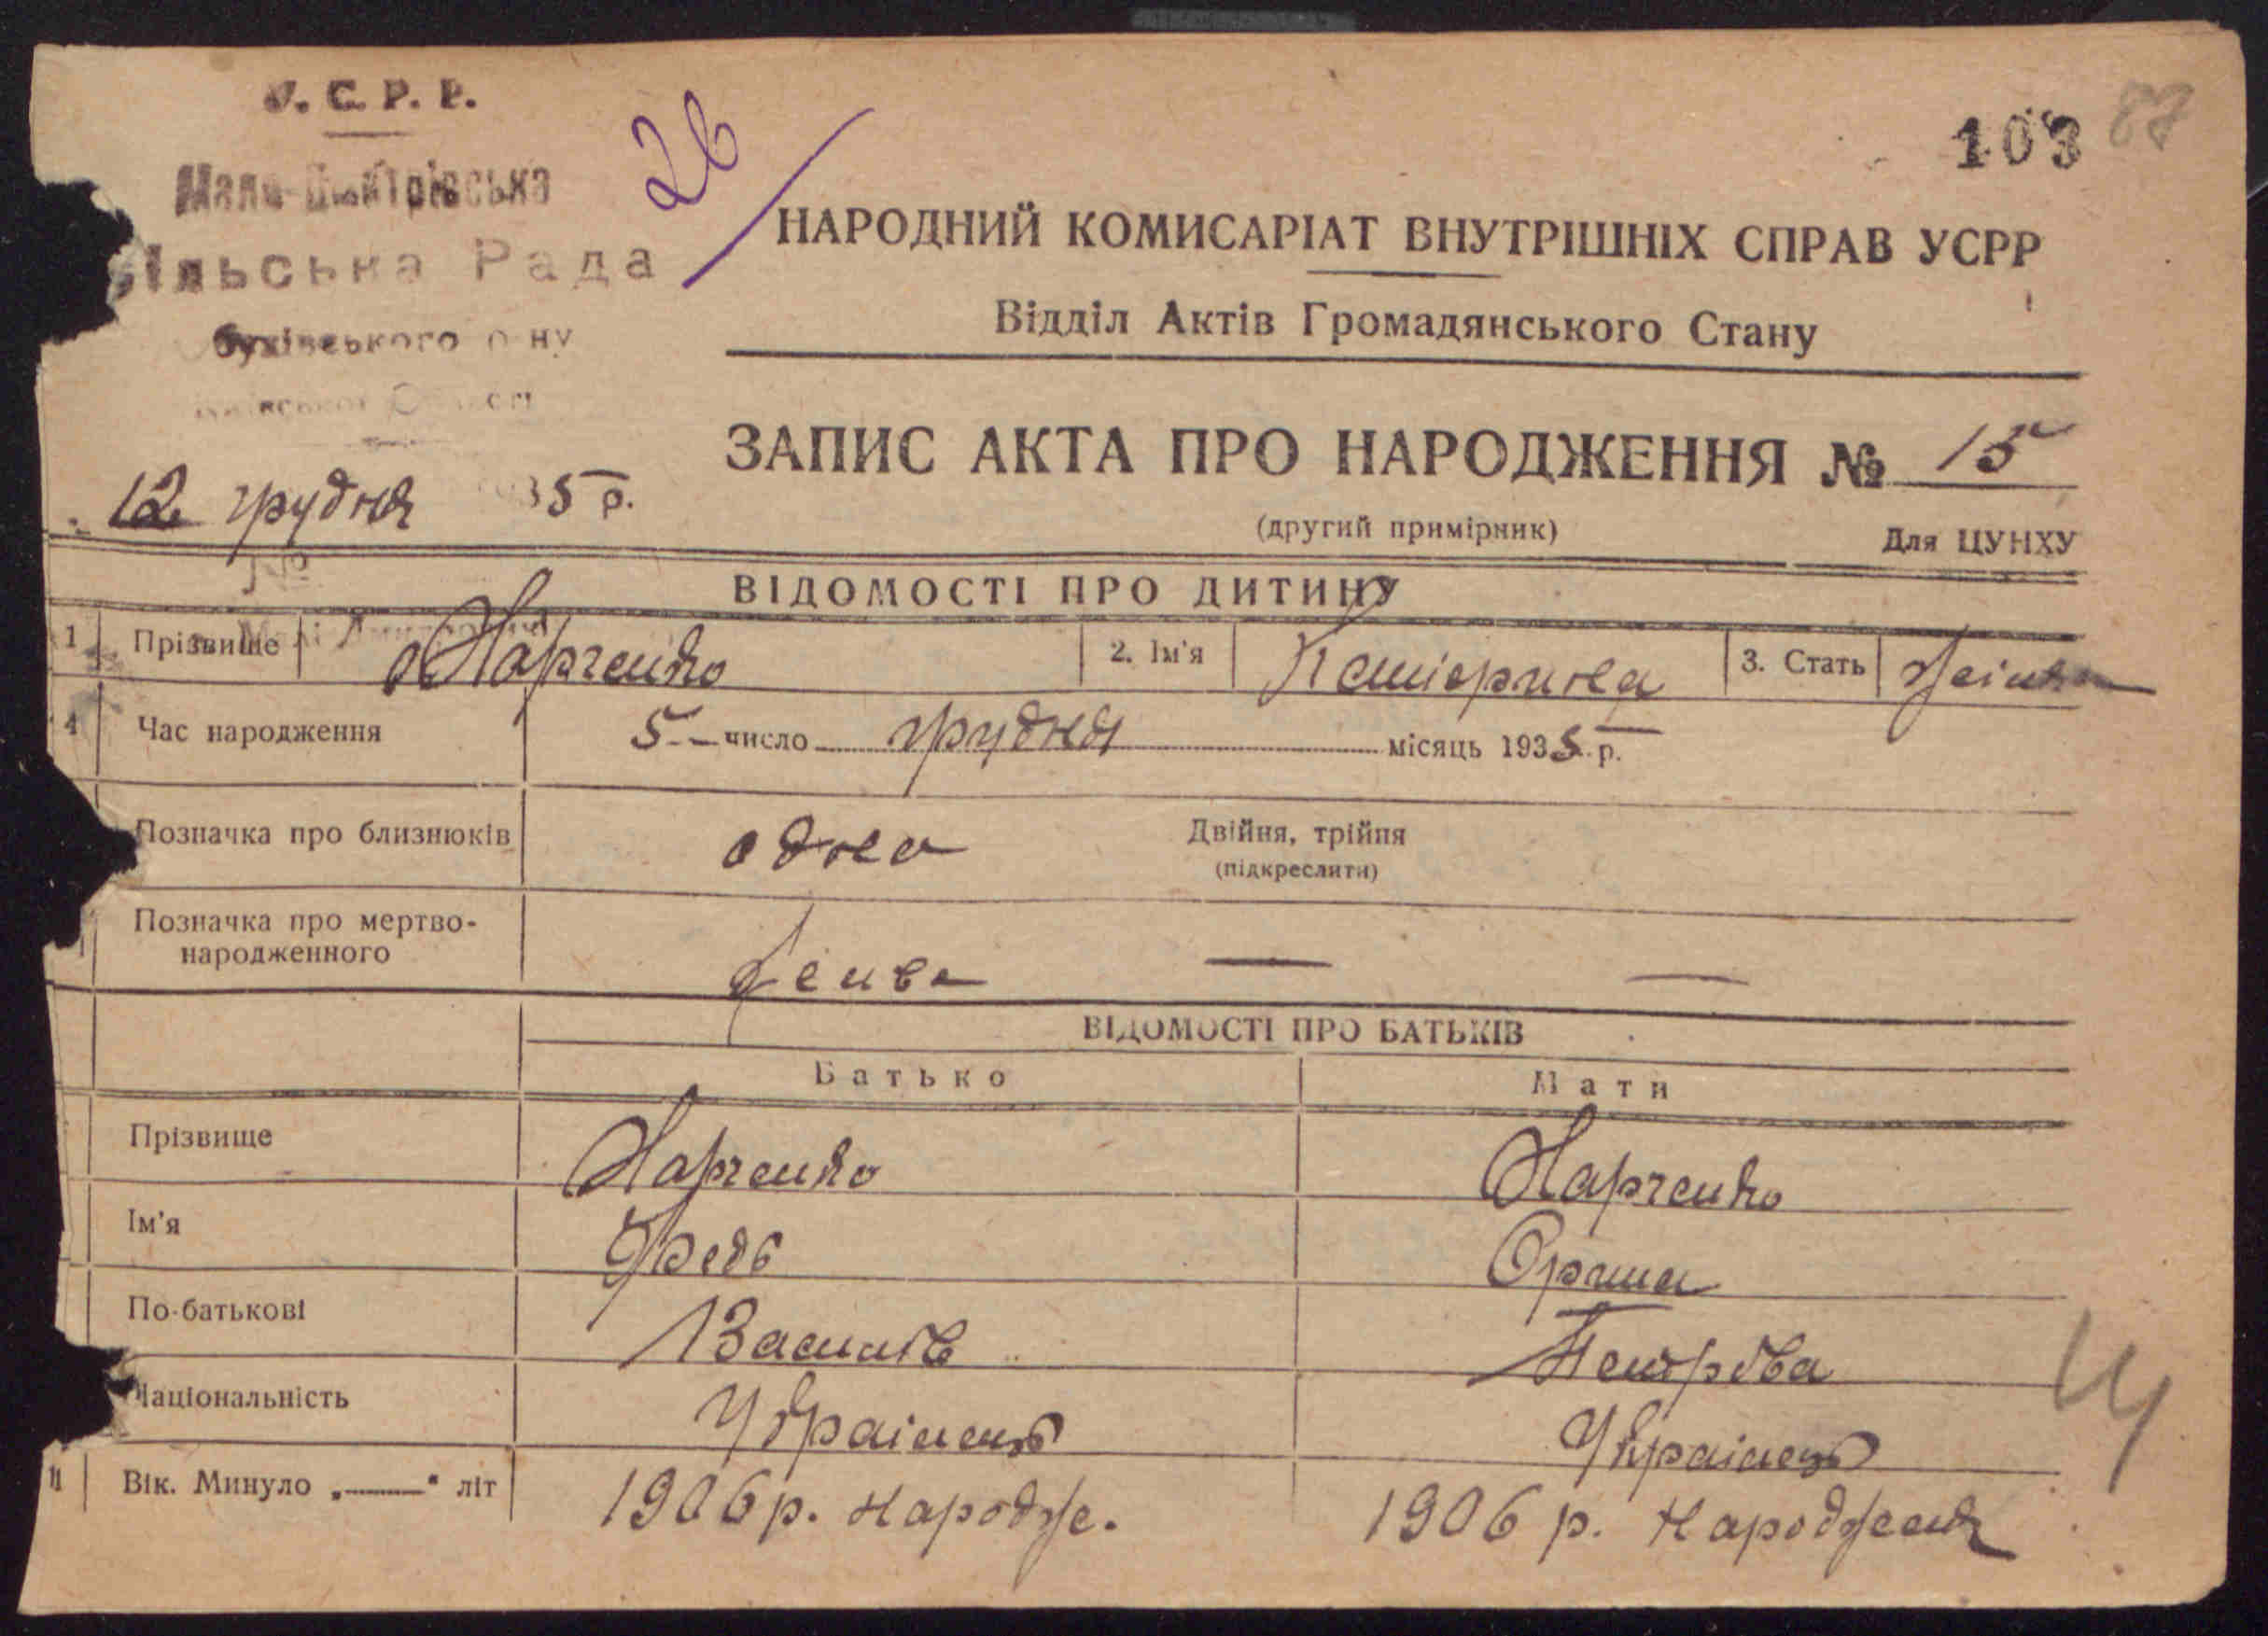 У. С. Р. Р.
26
103 87
Мало-Дмитрівська
ільська Рада
НАРОДНИЙ КОМИСАРІАТ ВНУТРІШНІХ СПРАВ УСРР
бухівського
Відділ Актів Громадянського Стану
ЗАПИС АКТА ПРО НАРОДЖЕННЯ № 15
12 грудня 1935 р.
(другий примірник)
Для ЦУНХУ
№
ВІДОМОСТІ ПРО ДИТИНУ
1 Прізвище Харченко 2. Ім'я Катерина 3. Стать
4 Час народження 5 число грудня місяць 1935 р.
Позначка про близнюків одно Двійня, трійня
(підкреслити)
Позначка про мертво-
народженного живе — —
ВІДОМОСТІ ПРО БАТЬКІВ
Батько Мати
Прізвище Харченко Харченко
Ім'я Федь Орина
По-батькові Василів Петрова
Національність Українець Українець
11 Вік. Минуло „——" літ 1906 р. народже. 1906 р. народження